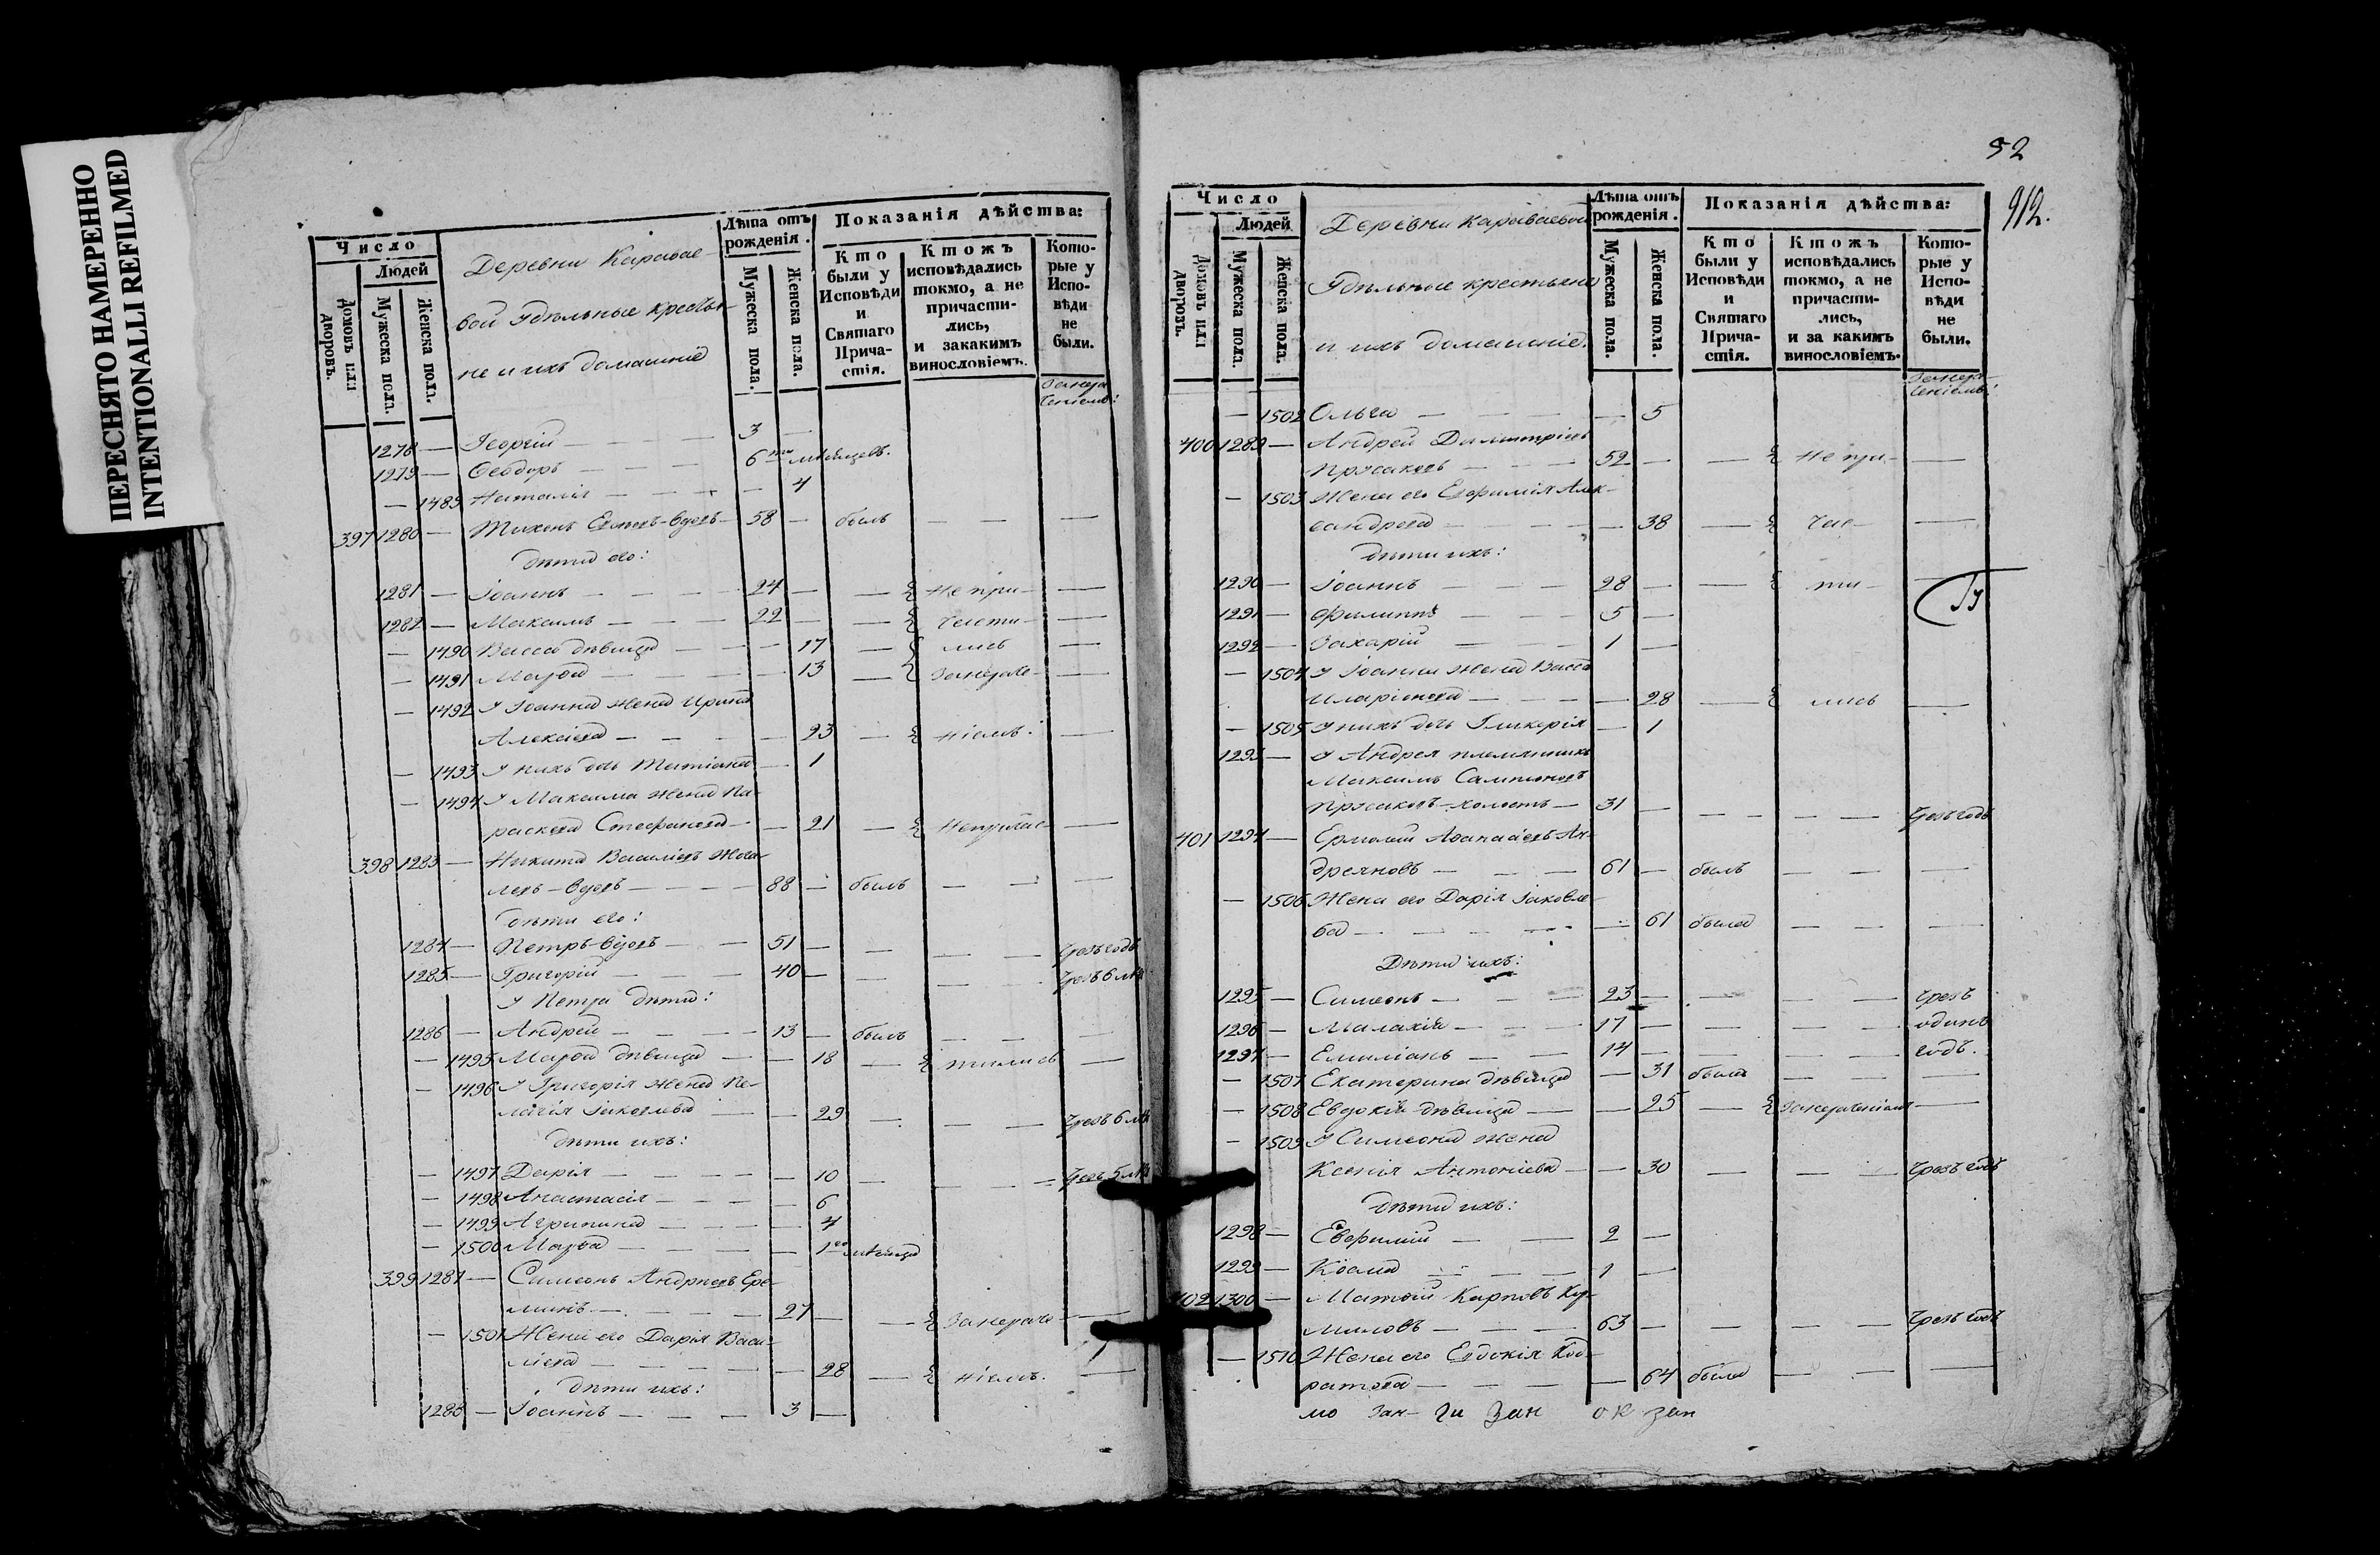 ПЕРЕСНЯТО НАМЕРЕННО
INTENTIONALLI REFILMED
Число
Людей
Домовъ или дворовъ.
Мужеска пола.
Женска пола.
Деревни Каравае-
вой Удѣльные крестья-
не и ихъ домашніе
Лѣта отъ рожденія.
Мужеска пола.
Женска пола.
Показанія дѣйства:
Кто были у Исповѣди и Святаго Прича-стія.
Ктожъ исповѣдались токмо, а не причасти-лись, и закакимъ винословіемъ.
Кото-рые у Испо-вѣди не были.
1278 — Георгій — 3 —
1279 — Ѳеодоръ — 6ти мѣсяцевъ.
— 1489 Наталія — — 4
397 1280 — Тихонъ — вдовъ — 58 — былъ — —
дѣти его:
1281 — Іоаннъ — 24 — — Не при- —
1282 — Максимъ — 22 — — части- —
— 1490 Васса дѣвица — — 17 — лись —
— 1491 Марѳа — — 13 — —
— 1492 У Іоанна жена Ирина
Алексіева — — 23 — ніемъ. —
— 1493 У нихъ дочь Татіана — 1
— 1494 У Максима жена Па-
раскева Стефанова — — 21 — Неприча- —
398 1283 — Никита Василіевъ
— вдовъ — 88 — былъ — —
дѣти его:
1284 — Петръ — вдовъ — 51 — — — Чрезъ годъ
1285 — Григорій — 40 — — — Чрезъ 6 лѣ
У Петра дѣти:
1286 — Андрей — 13 — былъ — —
— 1495 Марѳа дѣвица — — 18 — тились —
— 1496 У Григорія жена Пе-
лагія Іаковлева — — 29 — — Чрезъ 6 лѣ
дѣти ихъ:
— 1497 Дарія — — 10 — — Чрезъ 5 лѣ
— 1498 Анастасія — — 6
— 1499 Агрипина — — 4
— 1500 Марѳа — — 1го мѣсяца
399 1287 — Симеонъ Андреевъ Ере-
минъ — 27 — — —
— 1501 Жена его Дарія Васи-
ліева — — 28 — ніемъ. —
дѣти ихъ:
1288 — Іоаннъ — 3 —
52
912.
Число
Людей
Домовъ или дворовъ.
Мужеска пола.
Женска пола.
Деревни Караваевой
Удѣльные крестьяне
и ихъ домашніе.
Лѣта отъ рожденія.
Мужеска пола.
Женска пола.
Показанія дѣйства:
Кто были у Исповѣди и Святаго Прича-стія.
Ктожъ исповѣдались токмо, а не причасти-лись, и за какимъ винословіемъ.
Кото-рые у Испо-вѣди не были.
— 1502 Ольга — — 5
400 1289 — Андрей Димитріевъ
Прусаковъ — 52 — — Не при- —
— 1503 Жена его Евфимія Алек-
сандрова — — 38 — ча- —
дѣти ихъ:
1290 — Іоаннъ — 28 — — ти- —
1291 — Филиппъ — 5 —
1292 — Захарій — 1 —
— 1504 У Іоанна жена Васса
Иларіонова — — 28 — лись —
— 1505 У нихъ дочь Гликерія — 1
1293 — У Андрея племянникъ
Максимъ Сампсоновъ
Прусаковъ — холостъ — 31 — — — Чрезъ годъ
401 1294 — Ермолай Аѳанасіевъ Ан-
дреяновъ — 61 — былъ — —
— 1506 Жена его Дарія Іаковле-
ва — — 61 была — —
Дѣти ихъ:
1295 — Симеонъ — 23 — — — чрезъ
1296 — Малахія — 17 — — — одинъ
1297 — Емиліанъ — 14 — — — годъ.
— 1507 Екатерина дѣвица — 31 была — —
— 1508 Евдокія дѣвица — — 25 — —
— 1509 У Симеона жена
Ксенія Антоніева — — 30 — — Чрезъ годъ
дѣти ихъ:
1298 — Евфимій — 2 —
1299 — Косма — 1 —
402 1300 — Матѳій Карповъ
— 63 — — — Чрезъ годъ
— 1510 Жена его Евдокія Код-
ратова — — 64 была — —